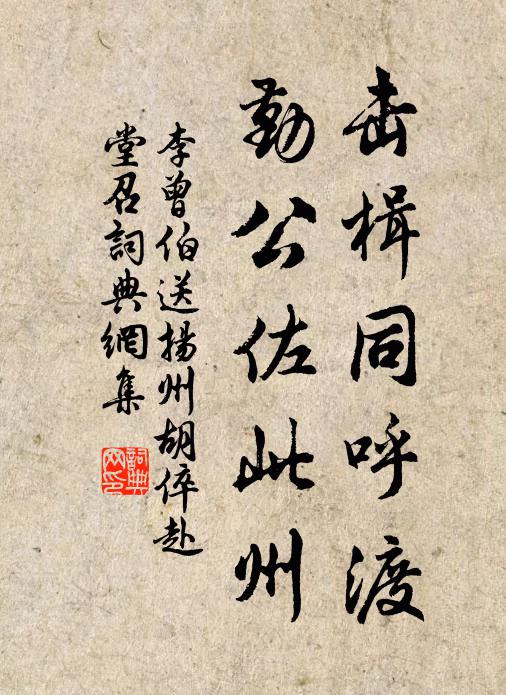 击楫同呼渡
勤公佐此州
李曾伯送揚州胡倅赴
堂召詞典網集
詞典
网印